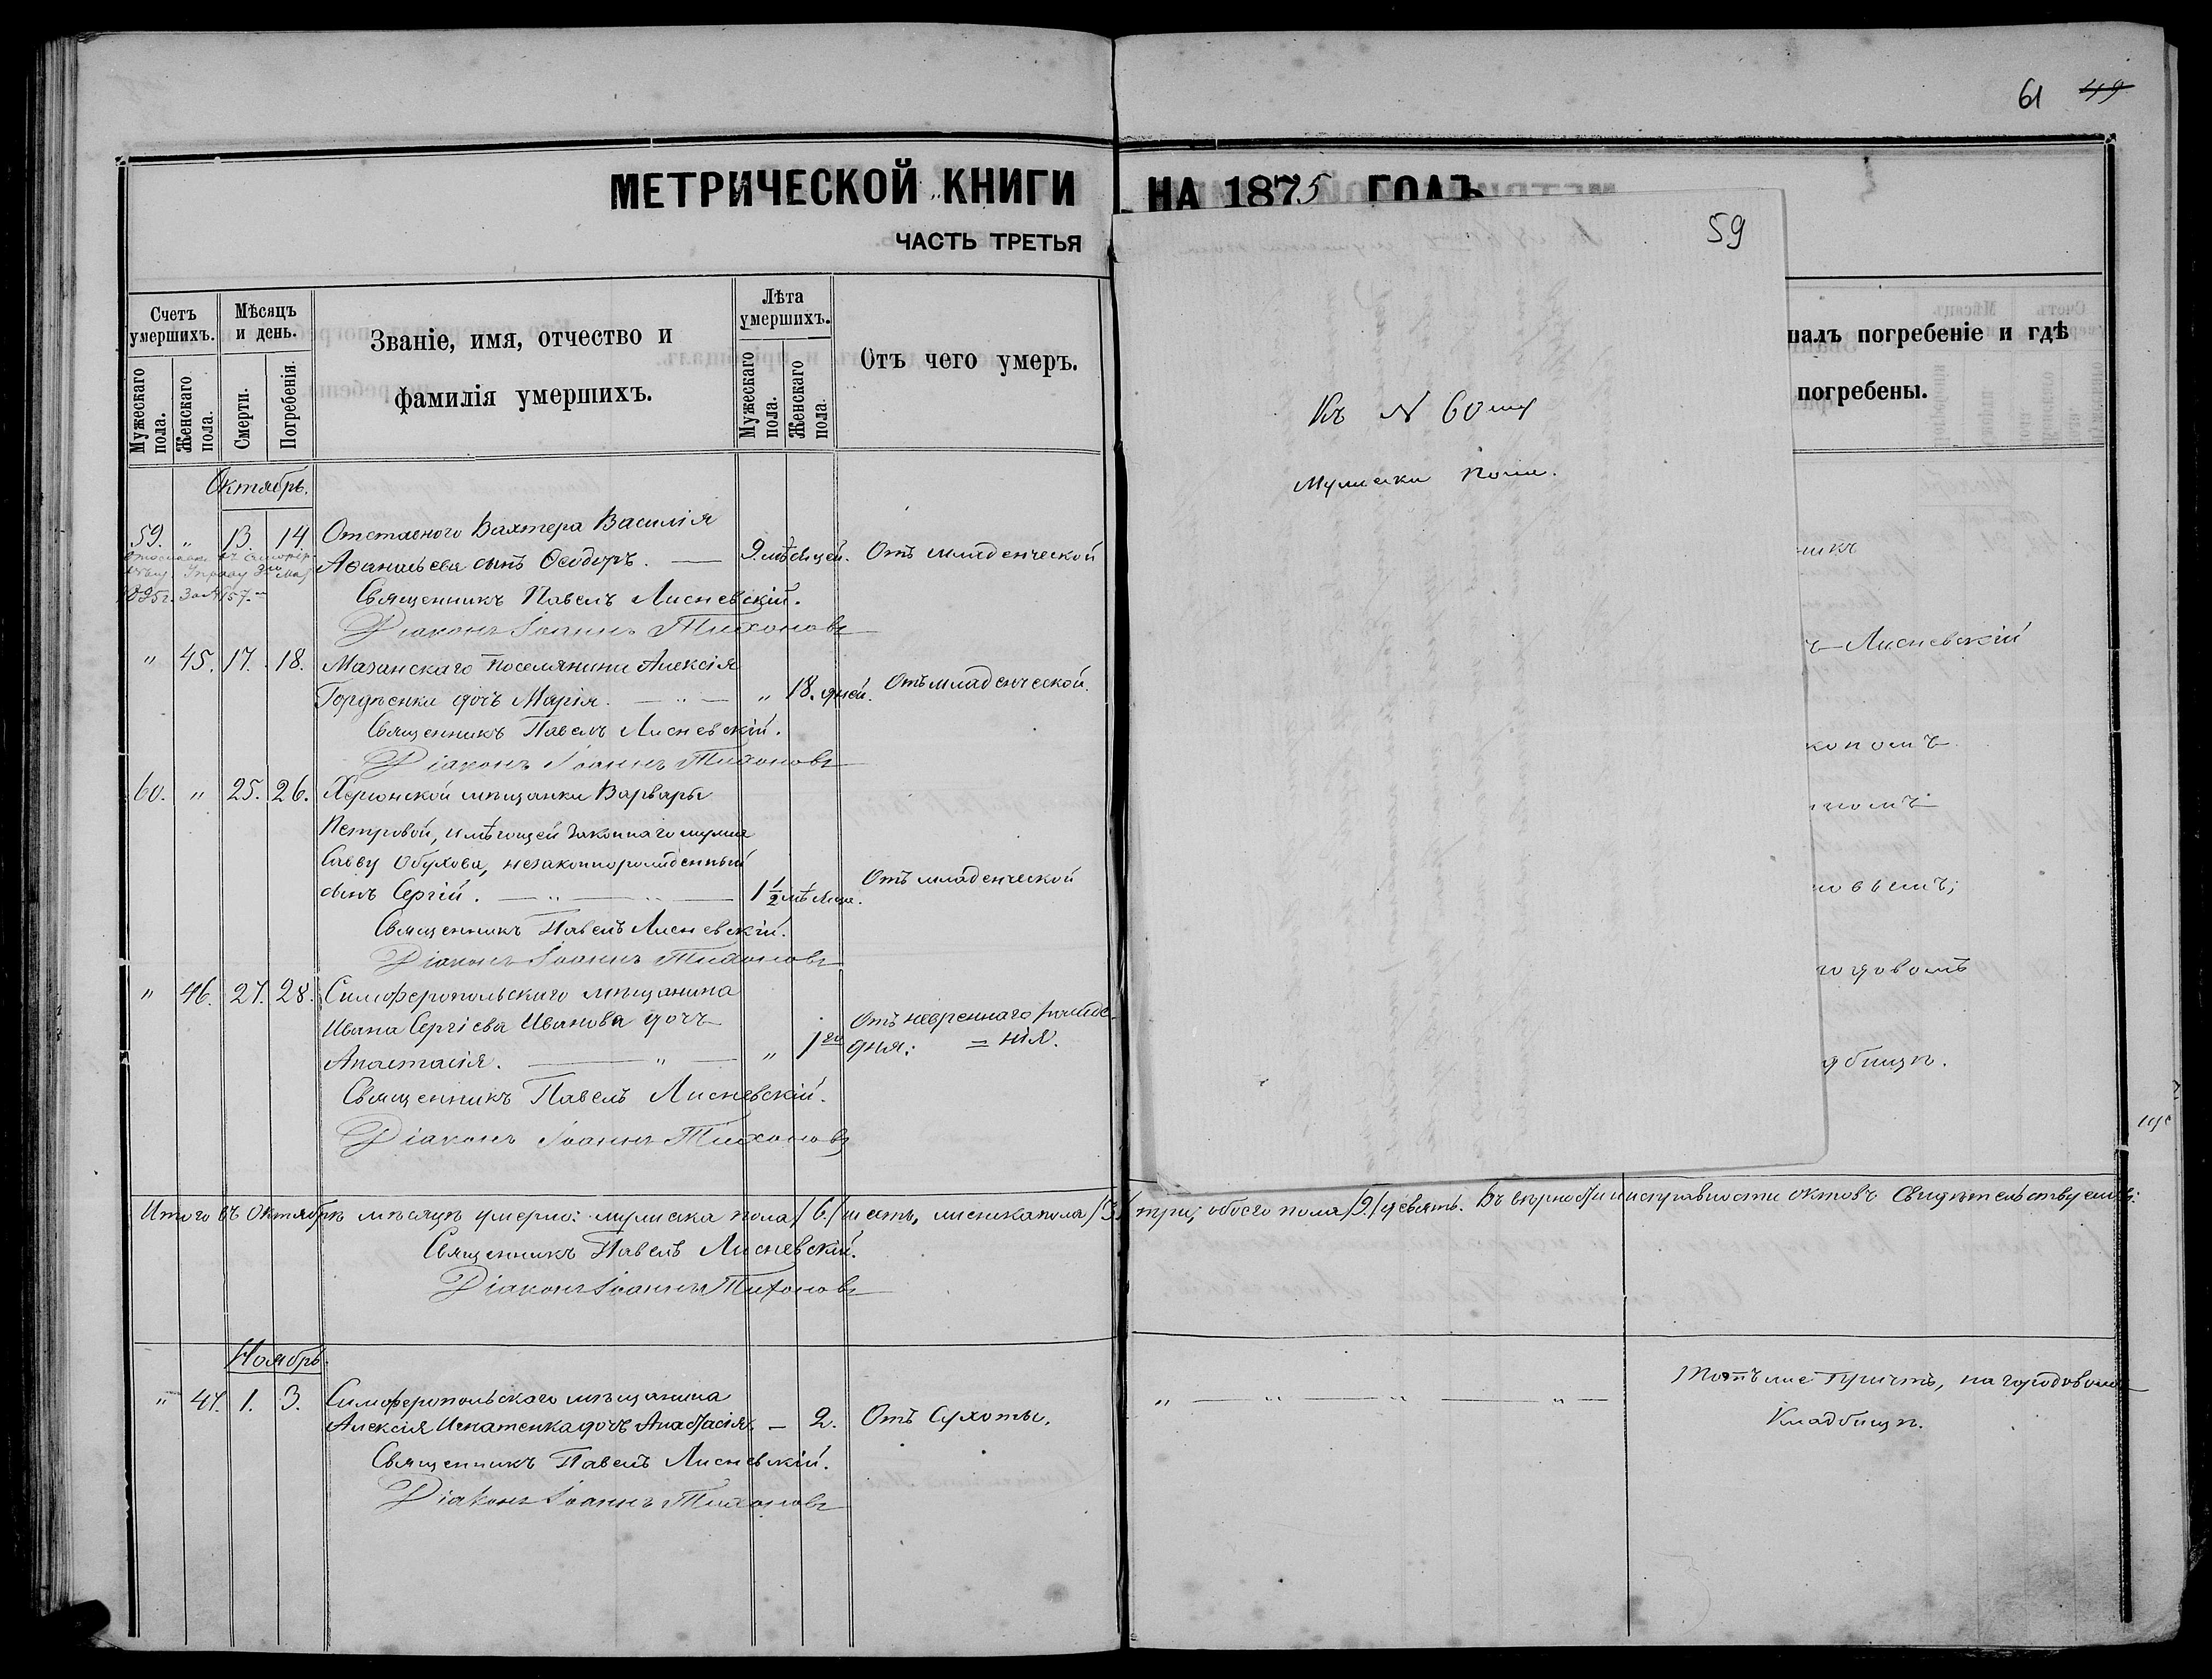 61 49
МЕТРИЧЕСКОЙ КНИГИ НА 1875 ГОДЪ
ЧАСТЬ ТРЕТЬЯ
59
Счетъ умершихъ.
Мужескаго пола.
Женскаго пола.
Мѣсяцъ и день.
Смерти.
Погребенія.
Званіе, имя, отчество и
фамилія умершихъ.
Лѣта умершихъ.
Мужескаго пола.
Женскаго пола.
Отъ чего умеръ.
палъ погребеніе и гдѣ
погребены.
Къ N 60му
Мужеска пола.
Октябрь.
59. " 13. 14. Отставного Вахтера Василія
Аѳанасьева сынъ Ѳеодоръ. — 9 мѣсяцей. Отъ младенческой
Священникъ Павелъ Лисневскій.
Діаконъ Іоаннъ Тихоновъ
никъ
" 45. 17. 18. Мазанскаго поселянина Алексія
Гордѣенки дочь Марія. — " — " 18. дней. Отъ младенческой.
Священникъ Павелъ Лисневскій.
Діаконъ Іоаннъ Тихоновъ
ъ Лисневскій
60. " 25. 26. Херсонской мѣщанки Варвары
Петровой, имѣющей законнаго мужа
Савву Обухова, незаконнорожденный
сынъ Сергій. — " — " — 1 1/2 мѣсяца. Отъ младенческой
Священникъ Павелъ Лисневскій.
Діаконъ Іоаннъ Тихоновъ
" 46. 27. 28. Симферопольскаго мѣщанина
Ивана Сергіева Иванова дочь
Анастасія. — " — " 1го дня. Отъ невременнаго рожде-
= нія.
Священникъ Павелъ Лисневскій.
Діаконъ Іоаннъ Тихоновъ
городовомъ
дбищѣ.
Итого въ Октябрѣ мѣсяцѣ умерло: мужеска пола /6./ шесть, женска пола /3./ три; обоего пола /9./ девять. Въ вѣрности и исправности актовъ свидѣтельствуемъ:
Священникъ Павелъ Лисневскій.
Діаконъ Іоаннъ Тихоновъ
Ноябрь.
" 47. 1. 3. Симферопольскаго мѣщанина
Алексія Игнатенка дочь Анастасія. — 2. Отъ сухоты.
" — " — " — " — Тотъ же Причтъ, на городовомъ
Кладбищѣ.
Священникъ Павелъ Лисневскій.
Діаконъ Іоаннъ Тихоновъ